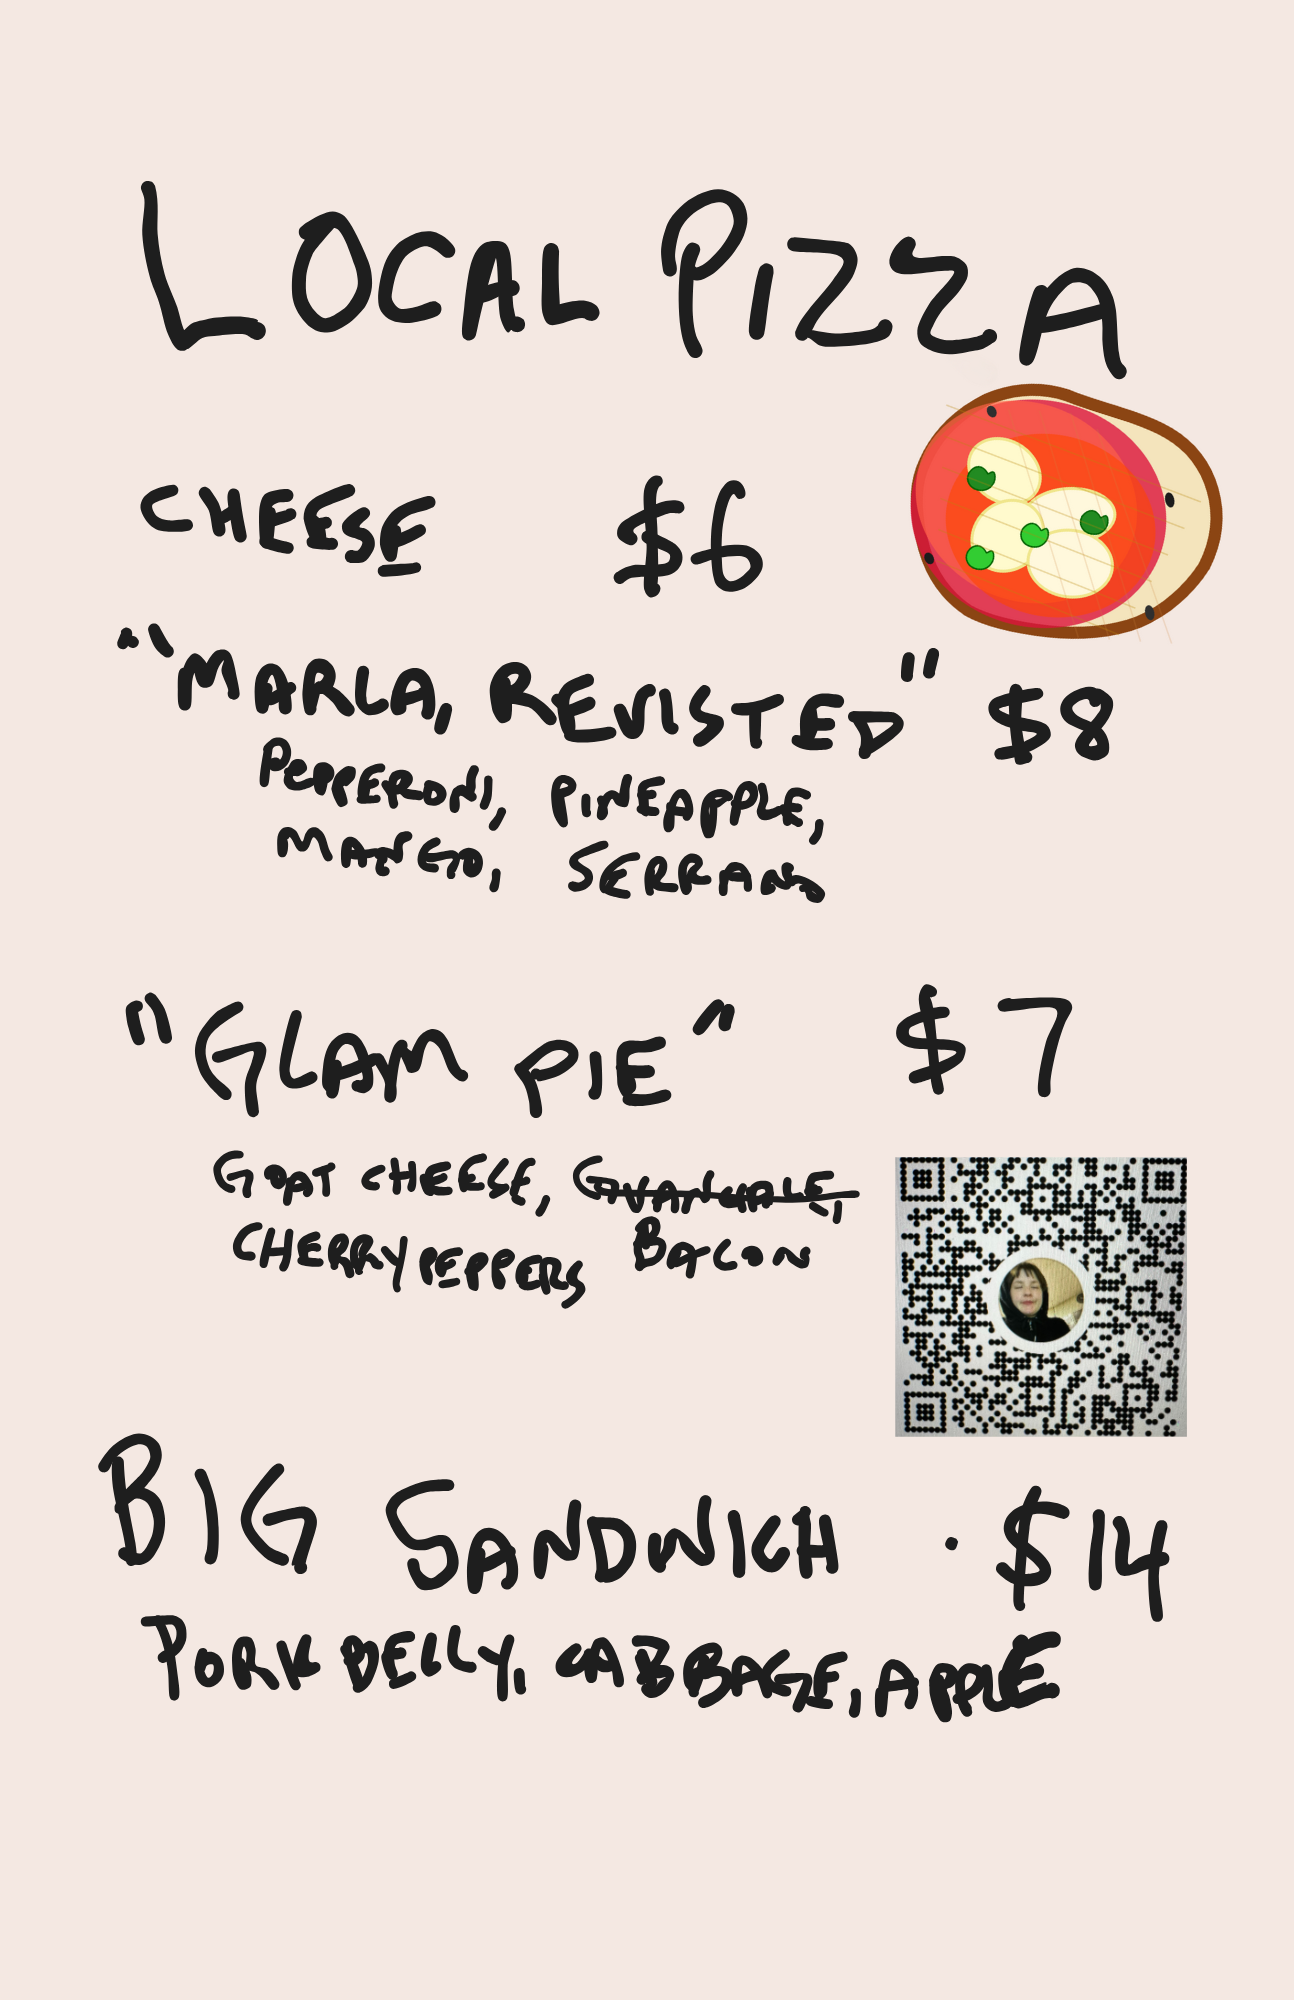 LOCAL PIZZA
CHEESE $6
"MARLA, REVISTED" $8
PEPPERONI, PINEAPPLE,
MANGO, SERRANO
"GLAM PIE" $7
GOAT CHEESE, GUANCIALE,
CHERRY PEPPERS BACON
BIG SANDWICH · $14
PORK BELLY, CABBAGE, APPLE